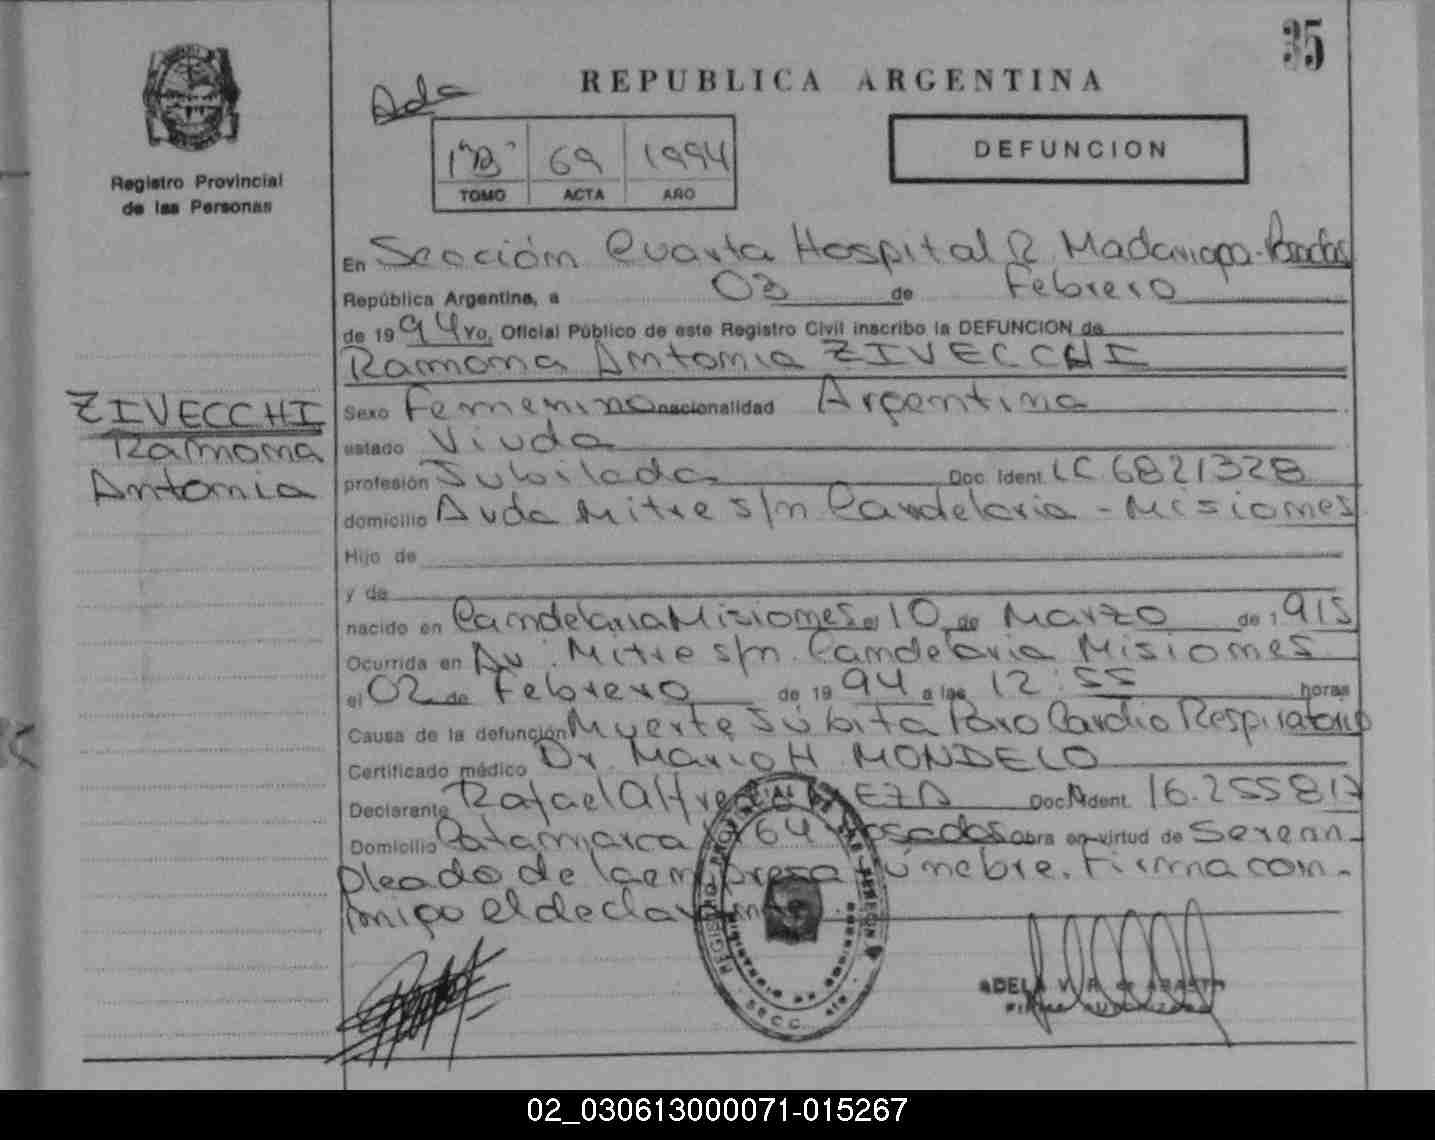 35
REPUBLICA ARGENTINA
Ada
1º "B" 69 1994
TOMO ACTA AÑO
DEFUNCION
Registro Provincial
de las Personas
En Sección Cuarta Hospital R. Madariaga - Posadas
República Argentina, a 03 de Febrero
de 1994 Yo, Oficial Público de este Registro Civil inscribo la DEFUNCION de
Ramona Antonia ZIVECCHI
ZIVECCHI
Ramona
Antonia
Sexo Femenino nacionalidad Argentina
estado Viuda
profesión Jubilada Doc. Ident. LC 6821328
domicilio Avda Mitre s/n. Candelaria - Misiones
Hijo de
y de
nacido en Candelaria Misiones el 10 de Marzo de 1915
Ocurrida en Av. Mitre s/n. Candelaria Misiones
el 02 de Febrero de 1994 a las 12:55 horas
Causa de la defunción Muerte Súbita Paro Cardio Respiratorio
Certificado médico Dr. Mario H MONDELO
Declarante Rafael Alfredo Doc. Ident. 16.255.817
Domicilio Catamarca 64 Posadas obra en virtud de Ser em
pleado de la empresa fúnebre. Firma con-
migo el declarante
REGISTRO PROVINCIAL DE LAS PERSONAS
SECC. 4ta
ADELA V. R. de
FIRMA AUTORIZADA
02_030613000071-015267